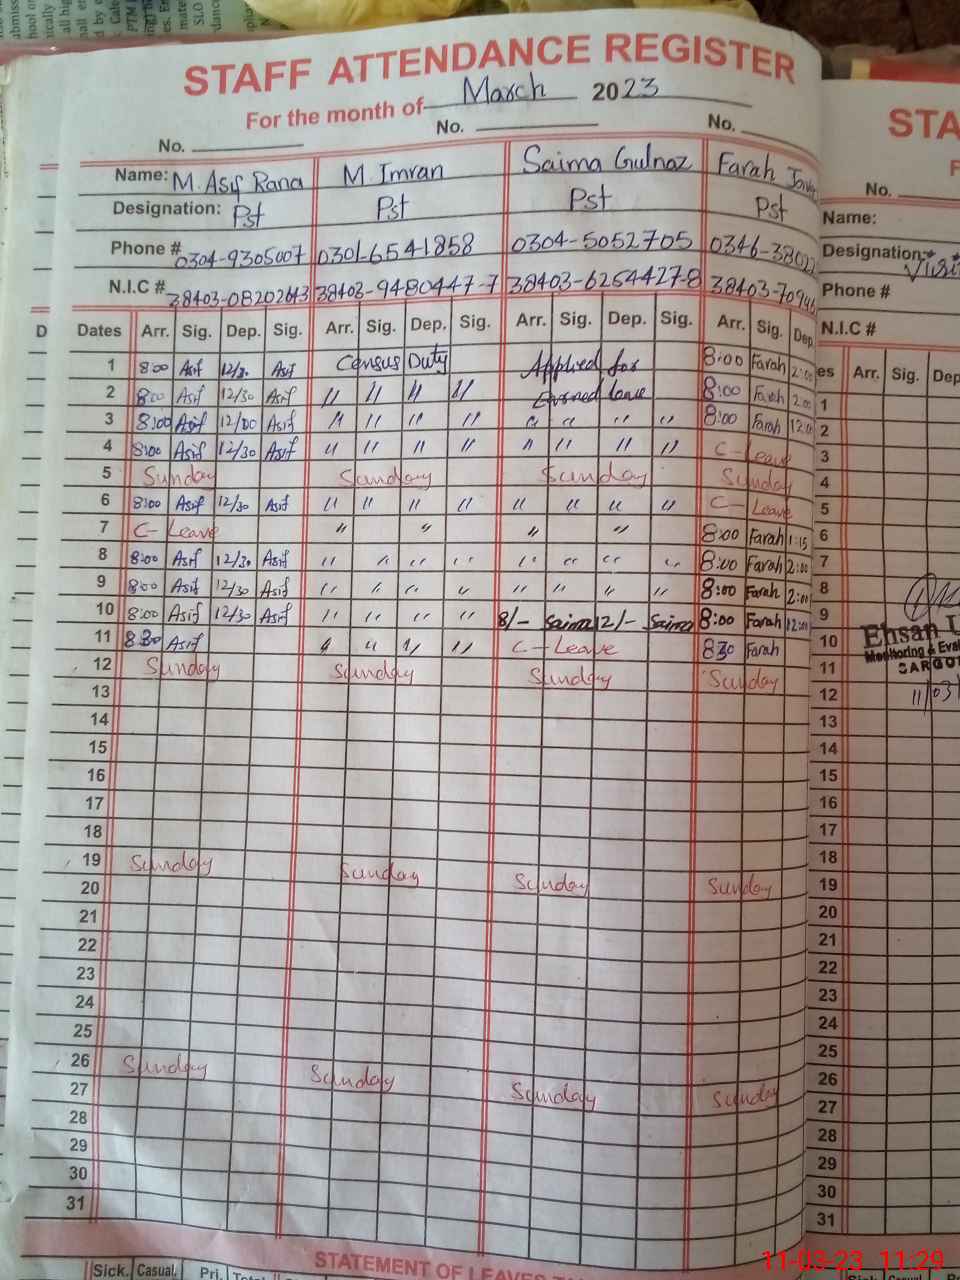 STAFF ATTENDANCE REGISTER
For the month of March 2023
No. No. No.
Name: M. Asif Rana M. Imran Saima Gulnaz Farah
Designation: Pst Pst Pst Pst
Phone # 0304-9305007 0301-6541858 0304-5052705 0346-38022
N.I.C # 38403-9480447-7 38403-6254427-8
Dates Arr. Sig. Dep. Sig. Arr. Sig. Dep. Sig. Arr. Sig. Dep. Sig. Arr. Sig. Dep.
1 8:00 Asif 12/30 Asif Census Duty Applied for 8:00 Farah 2:00
2 8:00 Asif 12/30 Asif " " " " Earned leave 8:00 Farah 2:00
3 8:00 Asif 12/00 Asif " " " " " " " " 8:00 Farah 12:00
4 8:00 Asif 12/30 Asif " " " " " " " " C-Leave
5 Sunday Sunday Sunday Sunday
6 8:00 Asif 12/30 Asif " " " " " " " " C-Leave
7 C-Leave " " " " 8:00 Farah 1:15
8 8:00 Asif 12/30 Asif " " " " " " " " 8:00 Farah 2:00
9 8:00 Asif 12/30 Asif " " " " " " " " 8:00 Farah 2:00
10 8:00 Asif 12/30 Asif " " " " 8/- Saima 12/- Saima 8:00 Farah 12:00
11 8:30 Asif " " " " C-Leave 8:30 Farah
12 Sunday Sunday Sunday Sunday
13
14
15
16
17
18
19 Sunday Sunday Sunday Sunday
20
21
22
23
24
25
26 Sunday Sunday Sunday Sunday
27
28
29
30
31
STATEMENT OF LEAVES
Sick. Casual. Pri.
STA
No.
Name:
Designation:
Phone #
N.I.C #
es Arr. Sig. Dep
1
2
3
4
5
6
7
8
9
10
11
12
13
14
15
16
17
18
19
20
21
22
23
24
25
26
27
28
29
30
31
Ehsan U
Monitoring & Eval
SARGO
11/03/
11-03-23 11:29